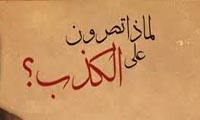 لماذا تصرون
على
الكذب؟